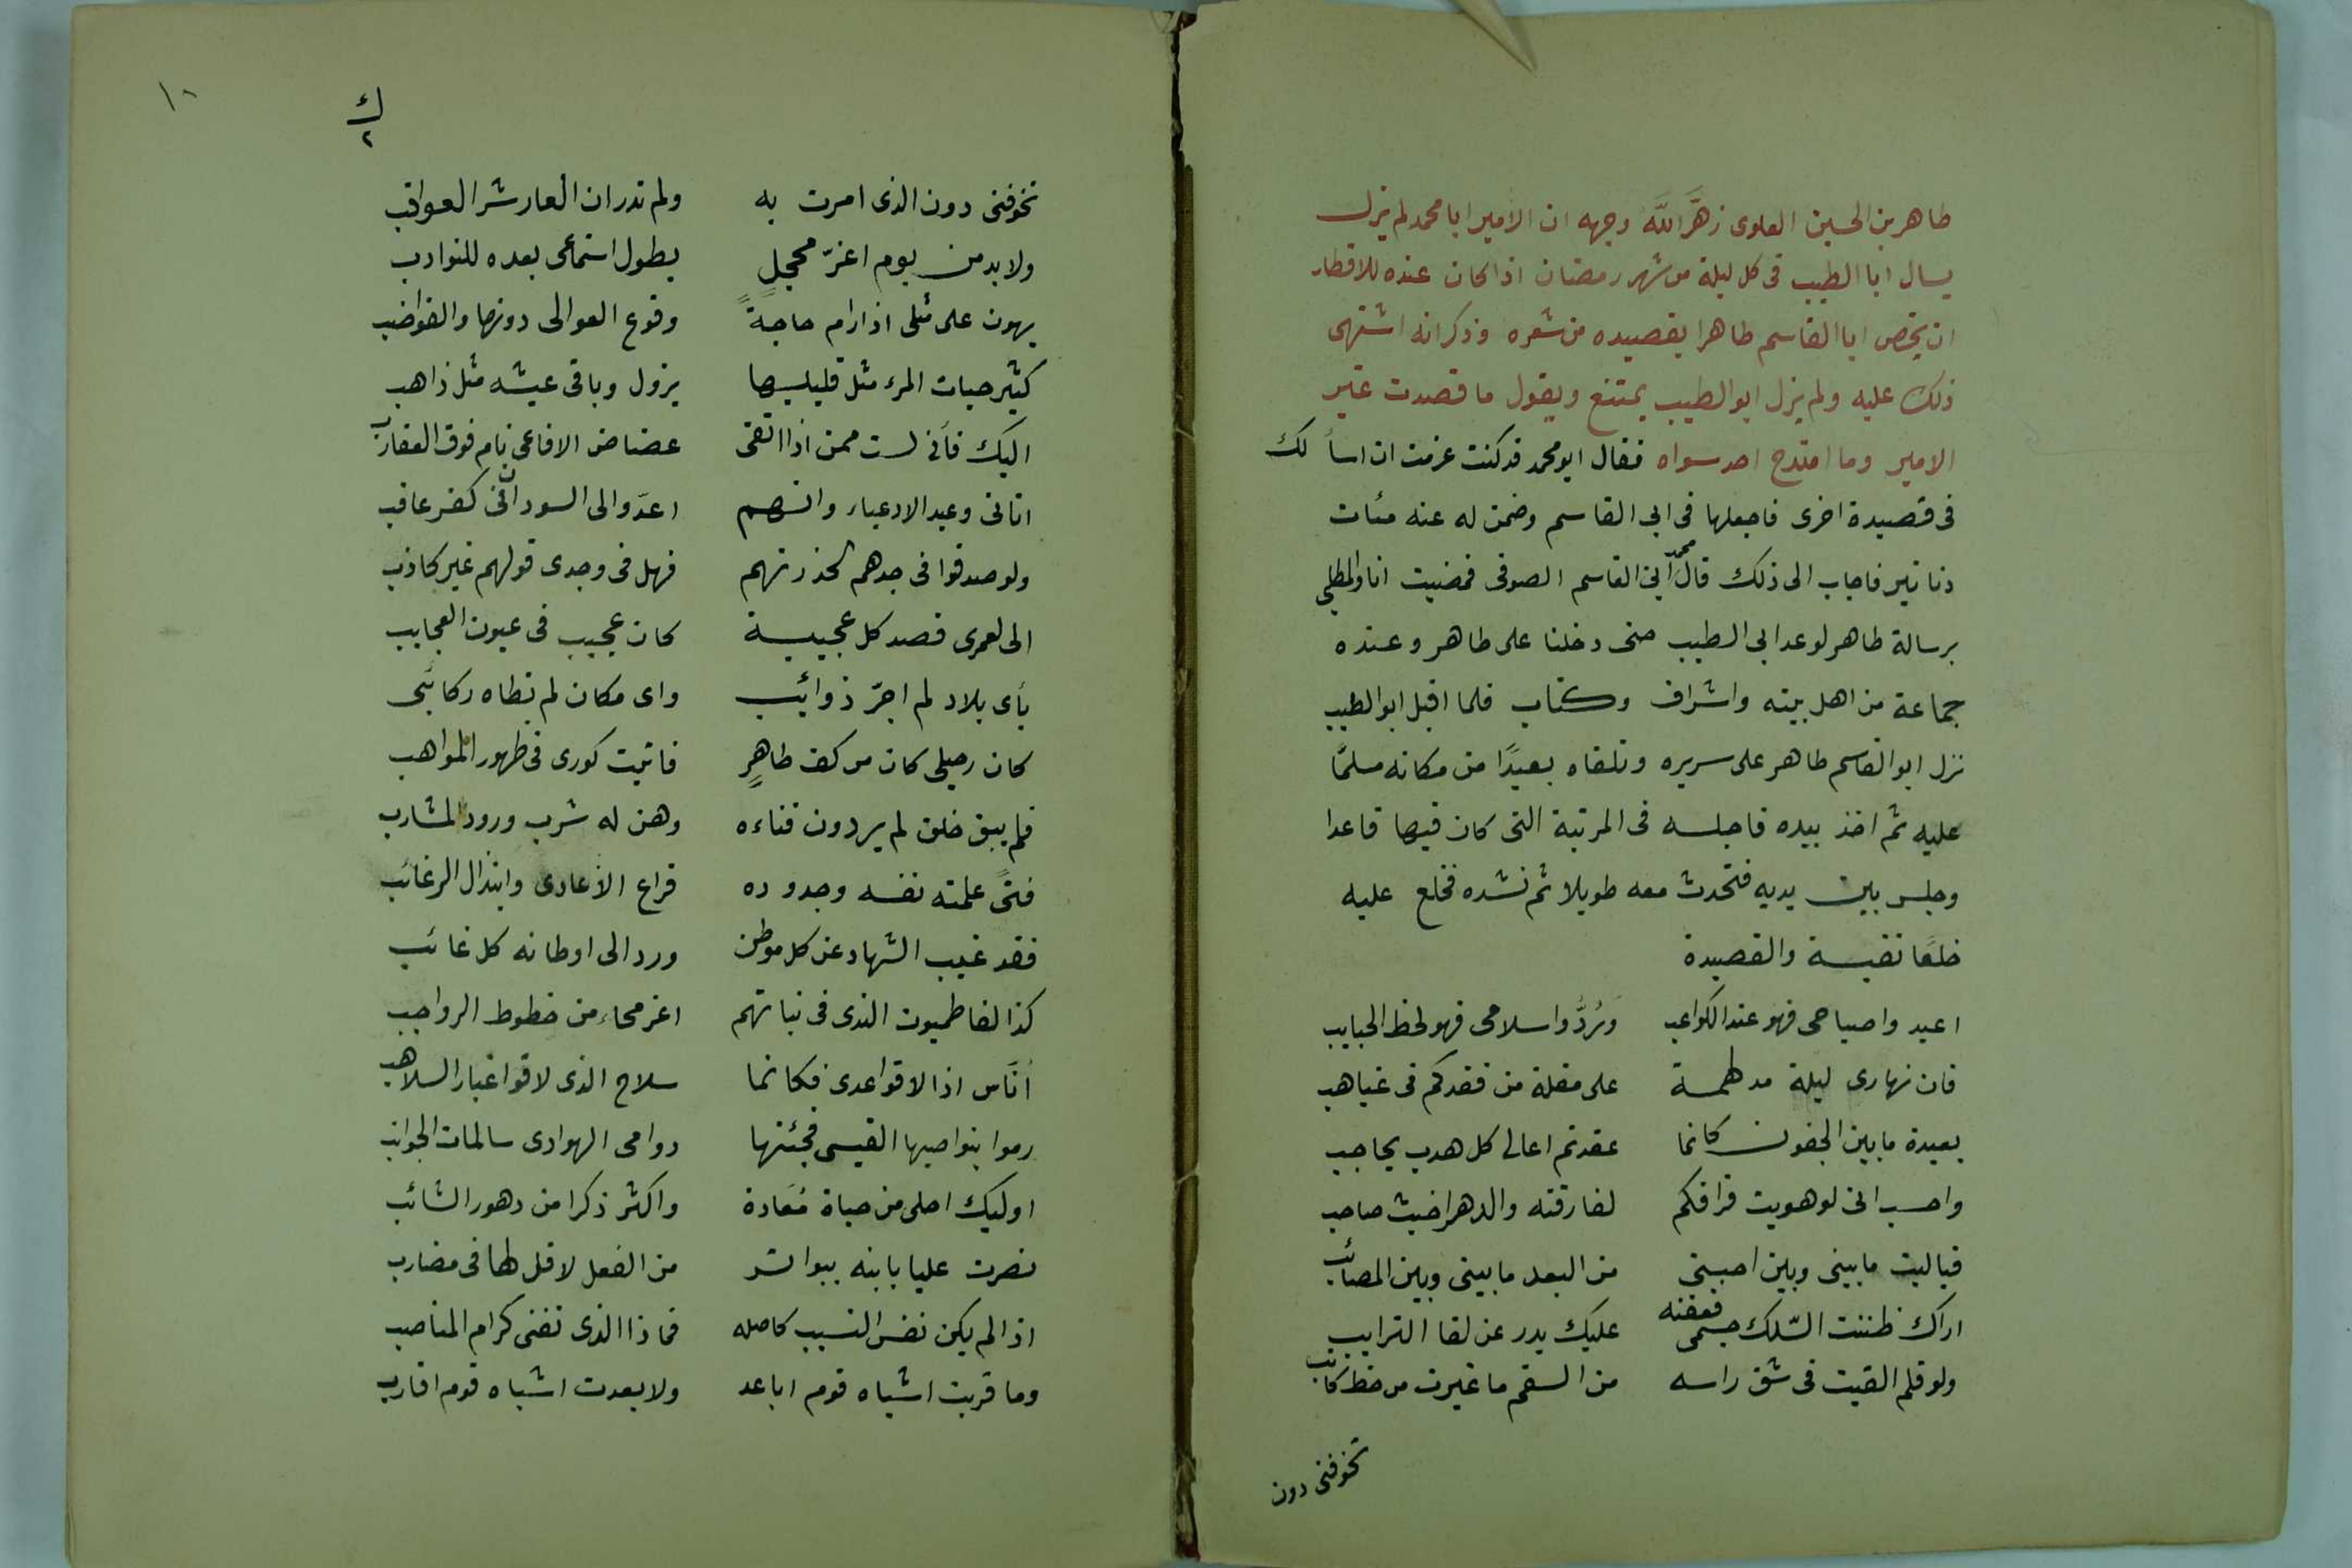 طاهر بن الحسين العلوى زهَّر اللَّه وجهه ان الأمير ابا محمد لم يزل
يسال ابا الطيب فى كل ليلة من شهر رمضان اذا كان عنده للافطار
ان يخص ابا القاسم طاهرا بقصيده من شعره وذكر انه اشتهى
ذلك عليه ولم يزل ابو الطيب يمتنع ويقول ما قصدت غير
الامير وما امتدح احد سواه فقال ابو محمد قد كنت عزمت ان اسأ لك
فى قصيدة اخرى فاجعلها فى ابى القاسم وضمن له عنه مئات
دنانير فاجاب الى ذلك قال محمد ابن القاسم الصوفى فمضيت انا والمطلبى
برسالة طاهر لوعد ابى الطيب حتى دخلنا على طاهر وعنده
جماعة من اهل بيته واشراف وكتاب فلما اقبل ابو الطيب
نزل ابو القاسم طاهر على سريره وتلقاه بعيدًا من مكانه مسلمًا
عليه ثم اخذ بيده فاجلسه فى المرتبة التى كان فيها قاعدا
وجلس بين يديه فتحدث معه طويلا ثم نشده فخلع عليه
خلعًا نفيسة والقصيدة
اعيد واصباحى فهو عند الكواعب وَرُدُّوا سلامى فهو لحظ الحبايب
فان نهارى ليلة مدلهمة على مقلة من فقدكم فى غياهب
بعيدة ما بين الجفون كانما عقدتم اعالى كل هدب بحاجب
واحسب انى لو هويت فراقكم لفارقته والدهر اخبث صاحب
فياليت ما بينى وبين احبتى من البعد ما بينى وبين المصائب
اراك ظننت السّلك جسمى فعقته عليك بدر عن لقا الترايب
ولو قلم القيت فى شق راسه من السقم ما غيرت من خط كاتب
تخوفنى دون
١٠
ك
٢
تخوفنى دون الذى امرت به ولم تدر ان العار شر العواقب
ولا بد من يوم اغرّ محجلٍ يطول استماعى بعده للنوادب
يهون على مثلى اذا رام حاجةً وقوع العوالى دونها والقواضب
كثير حيات المرء مثل قليلها يزول وباقى عيشه مثل ذاهب
اليك فأنى لست ممن اذا اتقى عضاض الافاعى نام فوق العقارب
اتانى وعيد الادعياء وانهم اعدّوا لى السودان فى كفر عاقب
ولو صدقوا فى جدهم لحذرتهم فهل فى وحدى قولهم غير كاذب
الى لعمرى قصد كل عجيبة كان عجيب فى عيون العجايب
بأى بلاد لم اجرّ ذوائب واى مكان لم تطاه ركائبى
كان رحيلى كان من كف طاهرٍ فاثبت كورى فى ظهور المواهب
فلم يبق خلق لم يردون فناءه وهن له شرب ورود المشارب
فتىً علمته نفسه وجدوده قراع الأعادى وابتذال الرغائب
فقد غيب الشهاد عن كل موطن ورد الى اوطانه كل غائب
كذا لفاطميون الندى فى بنانهم اعز محاء من خطوط الرواجب
أُنَاس اذا لاقوا عدى فكانما سلاح الذى لاقوا غبار السلاهب
رموا بنواصيها القسى فجئنها دوامى الهوادى سالمات الجوانب
اوليك احلى من حياة مُعَادة واكثر ذكرا من دهور الشائب
نصرت عليا يا بنه ببواتر من الفعل لا فل لها فى مضارب
اذا لم يكن نفس النسيب كاصله فماذا الذى تغنى كرام المناصب
وما قربت اشباه قوم اباعد ولا بعدت اشباه قوم اقارب